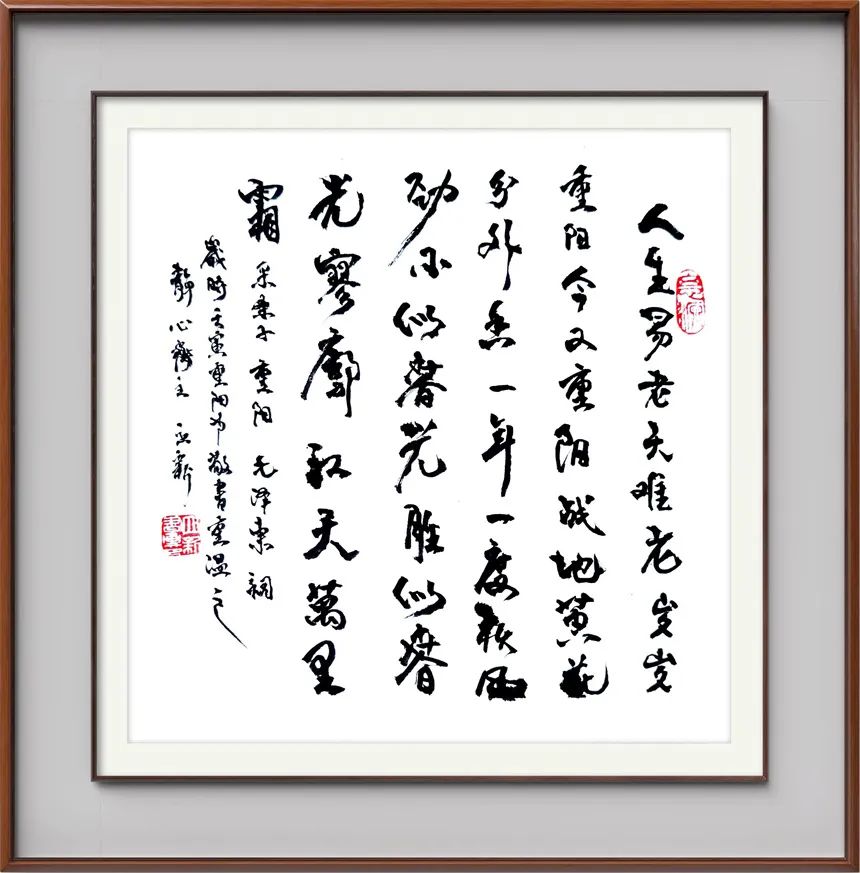 人生易老天难老岁岁
重阳今又重阳战地黄花
分外香一年一度秋风
劲不似春光胜似春
光寥廓江天萬里
霜 采桑子 重阳 毛泽東 詞
歲時壬寅重阳节敬書重温之
靜心齋主